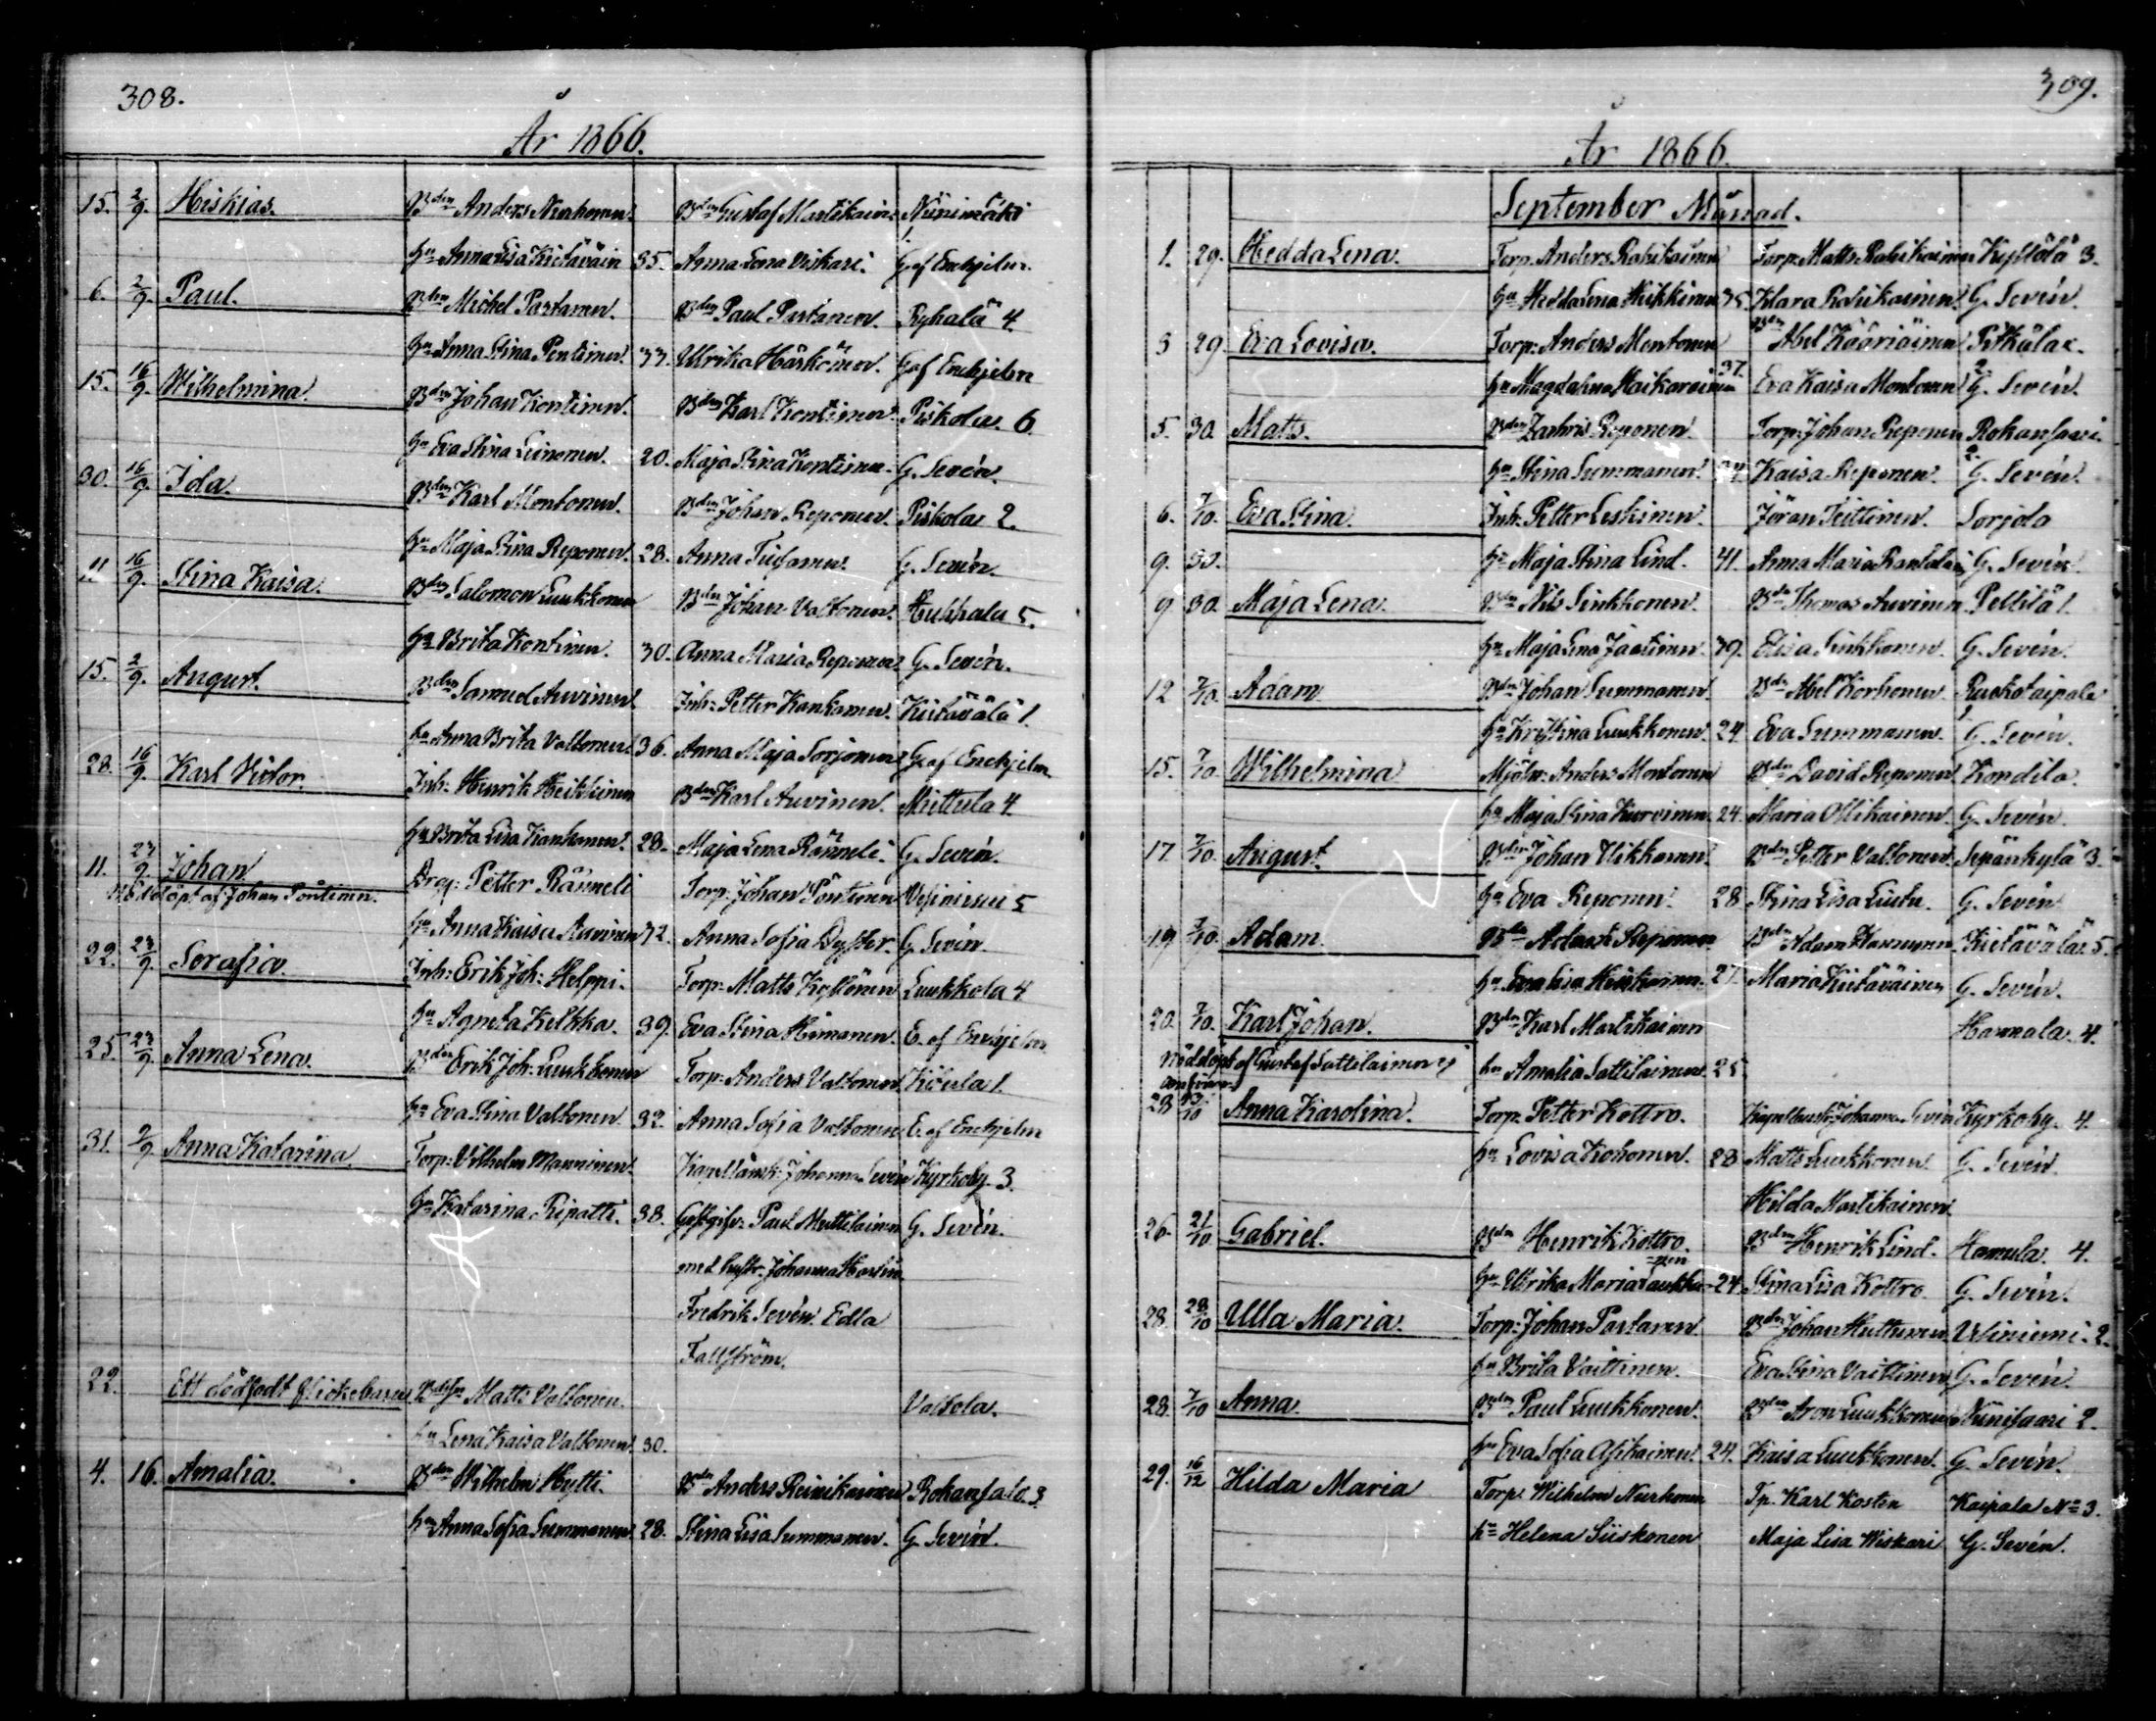 308.
År 1866.
15. 2/9. Hiskias. Bdn Anders Nurhonen. Bdn Gustaf Martikainen Niinimäki
hu Anna Lisa Kietäväin 35. Anna Lena Viskari. G. af Enehjelm.
6. 2/9. Paul. Bdn Michel Partanen. Bdn Paul Partanen. Ryhälä 4.
hu Anna Stina Pentinen. 33. Ulrika Härkönen. G. af Enehjelm
15. 16/9. Wilhelmina. Bdn Johan Kontinen. Bdn Karl Kontinen. Piskola 6.
hu Eva Stina Leinonen. 20. Maja Stina Kontinen. G. Sevén.
30. 16/9. Ida. Bdn Karl Montonen. Bdn Johan Reponen. Piskola 2.
hu Maja Stina Reponen. 28. Anna G. Sevén.
11. 16/9. Stina Kaisa. Bdn Salomon Luukkonen Bdn Johan Valtonen. Hukkala 5.
hu Brita Kontinen. 30. Anna Maria Reponen. G. Sevén.
15. 2/9. August. Bdn Samuel Auvinen Inh: Petter Kankanen. Kietävälä 1.
hu Anna Brita Valtonen. 36. Anna Maja Sorjonen G. af Enehjelm
28. 16/9. Karl Victor. Inh: Henrik Heikkinen Bdn Karl Auvinen. Miettula 4.
hu Brita Lisa Kankanen. 28. Maja Lena Ränneli. G. Sevén.
11. 23/9. Johan. Drag: Petter Ränneli Torp: Johan Pöntinen Vesiniemi 5
Nöddöpt af Johan Pöntinen.
hu Anna Kaisa Auvinen 32. Anna Sofia Dyster. G. Sevén.
22. 23/9. Serafia. Inh: Erik Joh: Helppi. Torp: Matts Kyllönen Luukkola 4
hu Agneta Kelkka. 39. Eva Stina Himanen. E. af Enehjelm
25. 23/9. Anna Lena. Bdn Erik Joh: Luukkonen Torp: Anders Valtonen 1.
hu Eva Stina Valtonen. 32. Anna Sofia Valtonen E. af Enehjelm
31. 2/9. Anna Katarina. Torp: Vilhelm Manninen. Kapellansk: Johanna Sevén Kyrkoby 3.
hu Katarina Ripatti. 38. Gästgifv: Paul Muttilainen G. Sevén.
med hustr. Johanna
Fredrik Sevén. Edla
Fallström.
22. Ett dödfödt flickebarn Matts Valtonen. Valtola.
hu Lena Kaisa Valtonen. 30.
4. 16. Amalia. Bdn Wilhelm Hytti. Bdn Anders Reinikainen Rokansalo. 3.
hu Anna Sofia Summanen 28. Stina Lisa Summanen. G. Sevén.
309.
År 1866.
September Månad.
1. 29. Hedda Lena. Torp. Anders Rahikainen Torp: Matts Rahikainen Kyllölä 3.
hu Hedda Lena Heikkinen 35. Klara Rahikainen. G. Sevén.
3 29 Eva Lovisa. Torp: Anders Montonen Bdn Abel Kääriäinen Pitkälax.
hu Magdalena Maikarainen 37. Eva Kaisa Montonen 2. G. Sevén.
5. 30. Matts. Bdn Zachris Reponen. Torp: Johan Reponen Rokansaari.
hu Stina Summanen. 34. Kaisa Reponen. 2. G. Sevén.
6. 7/10. Eva Stina. Inh: Petter Leskinen. Jöran Teittinen. Sorjola
9. 30. hu Maja Stina Lind. 41. Anna Maria Rantalain G. Sevén.
9 30. Maja Lena. Bdn Nils Sinkkonen. Bdn Thomas Auvinen Pellilä 1.
hu Maja Lena Jaatinen. 39. Elisa Sinkkonen. G. Sevén.
12 7/10. Adam. Bdn Johan Summanen. Bdn Abel Korhonen Ruokotaipale
hu Kristina Luukkonen. 24. Eva Summanen. 1. G. Sevén.
15. 7/10. Wilhelmina Mjöln: Anders Montonen Bdn David Reponen Kondila.
hu Maja Stina Kurvinen. 24. Maria Ollikainen. G. Sevén.
17. 7/10. August Bdn Johan Ukkonen. Bdn Petter Valtonen Sepänkylä 3.
hu Eva Reponen. 28 Stina Lisa Liuku. G. Sevén
19. 7/10. Adam. Bdn Adam Reponen Bdn Adam Kietävälä 5.
hu Eva Lisa Heiskanen. 27. Maria Kietäväinen G. Sevén.
20. 7/10. Karl Johan. Bdn Karl Martikainen Hamala. 4.
Nöddöpt af Gustaf Sattilainen
hu Amalia Sattilainen. 25
28 Anna Karolina. Torp: Petter Kottro. Kapellansk: Johanna Sevén Kyrkoby. 4.
hu Lovisa Kohonen. 28 Matts Luukkonen G. Sevén.
Hilda Martikainen
26. 21/10 Gabriel. Bdn Henrik Kottro. Bdn Henrik Lind. Hamula. 4.
hu Ulrika Maria Laukka=nen 24. Stina Lisa Kottro. G. Sevén.
28. 28/10 Ulla Maria. Torp: Johan Partanen. Bdn Johan Huttunen Vesiniemi. 2.
hu Brita Vaittinen. Eva Stina Vaittinen G. Sevén.
28. 7/10 Anna. Bdn Paul Luukkonen. Bdn Aron Luukkonen Niinisaari 2.
hu Eva Sofia Asikainen. 24. Kaisa Luukkonen. G. Sevén.
29. 16/12 Hilda Maria Torp. Wilhelm Nurhonen Tp. Karl Kosten Kaipala No 3.
hu Helena Siiskonen Maja Lisa Wiskari G. Sevén.